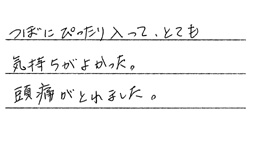 つぼにぴったり入って、とても
気持ちがよかった。
頭痛がとれました。